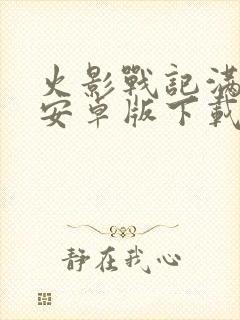 火影戰記滿
安卓版下載
靜在我心